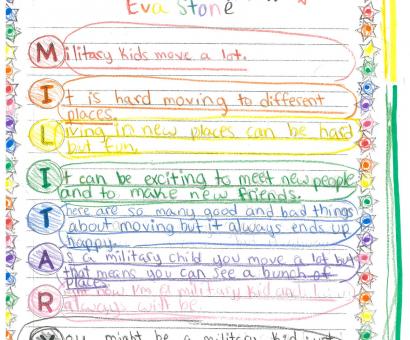 Eva Stone
Military Kids move a lot.
It is hard moving to different
places.
Living in new places can be hard
but fun.
It can be exciting to meet new people
and to make new friends.
There are so many good and bad things
about moving but it always ends up
happy.
As a military child you move a lot but
that means you can see a bunch of
places.
now I'm a military kid and
always will be.
You might be a military kid